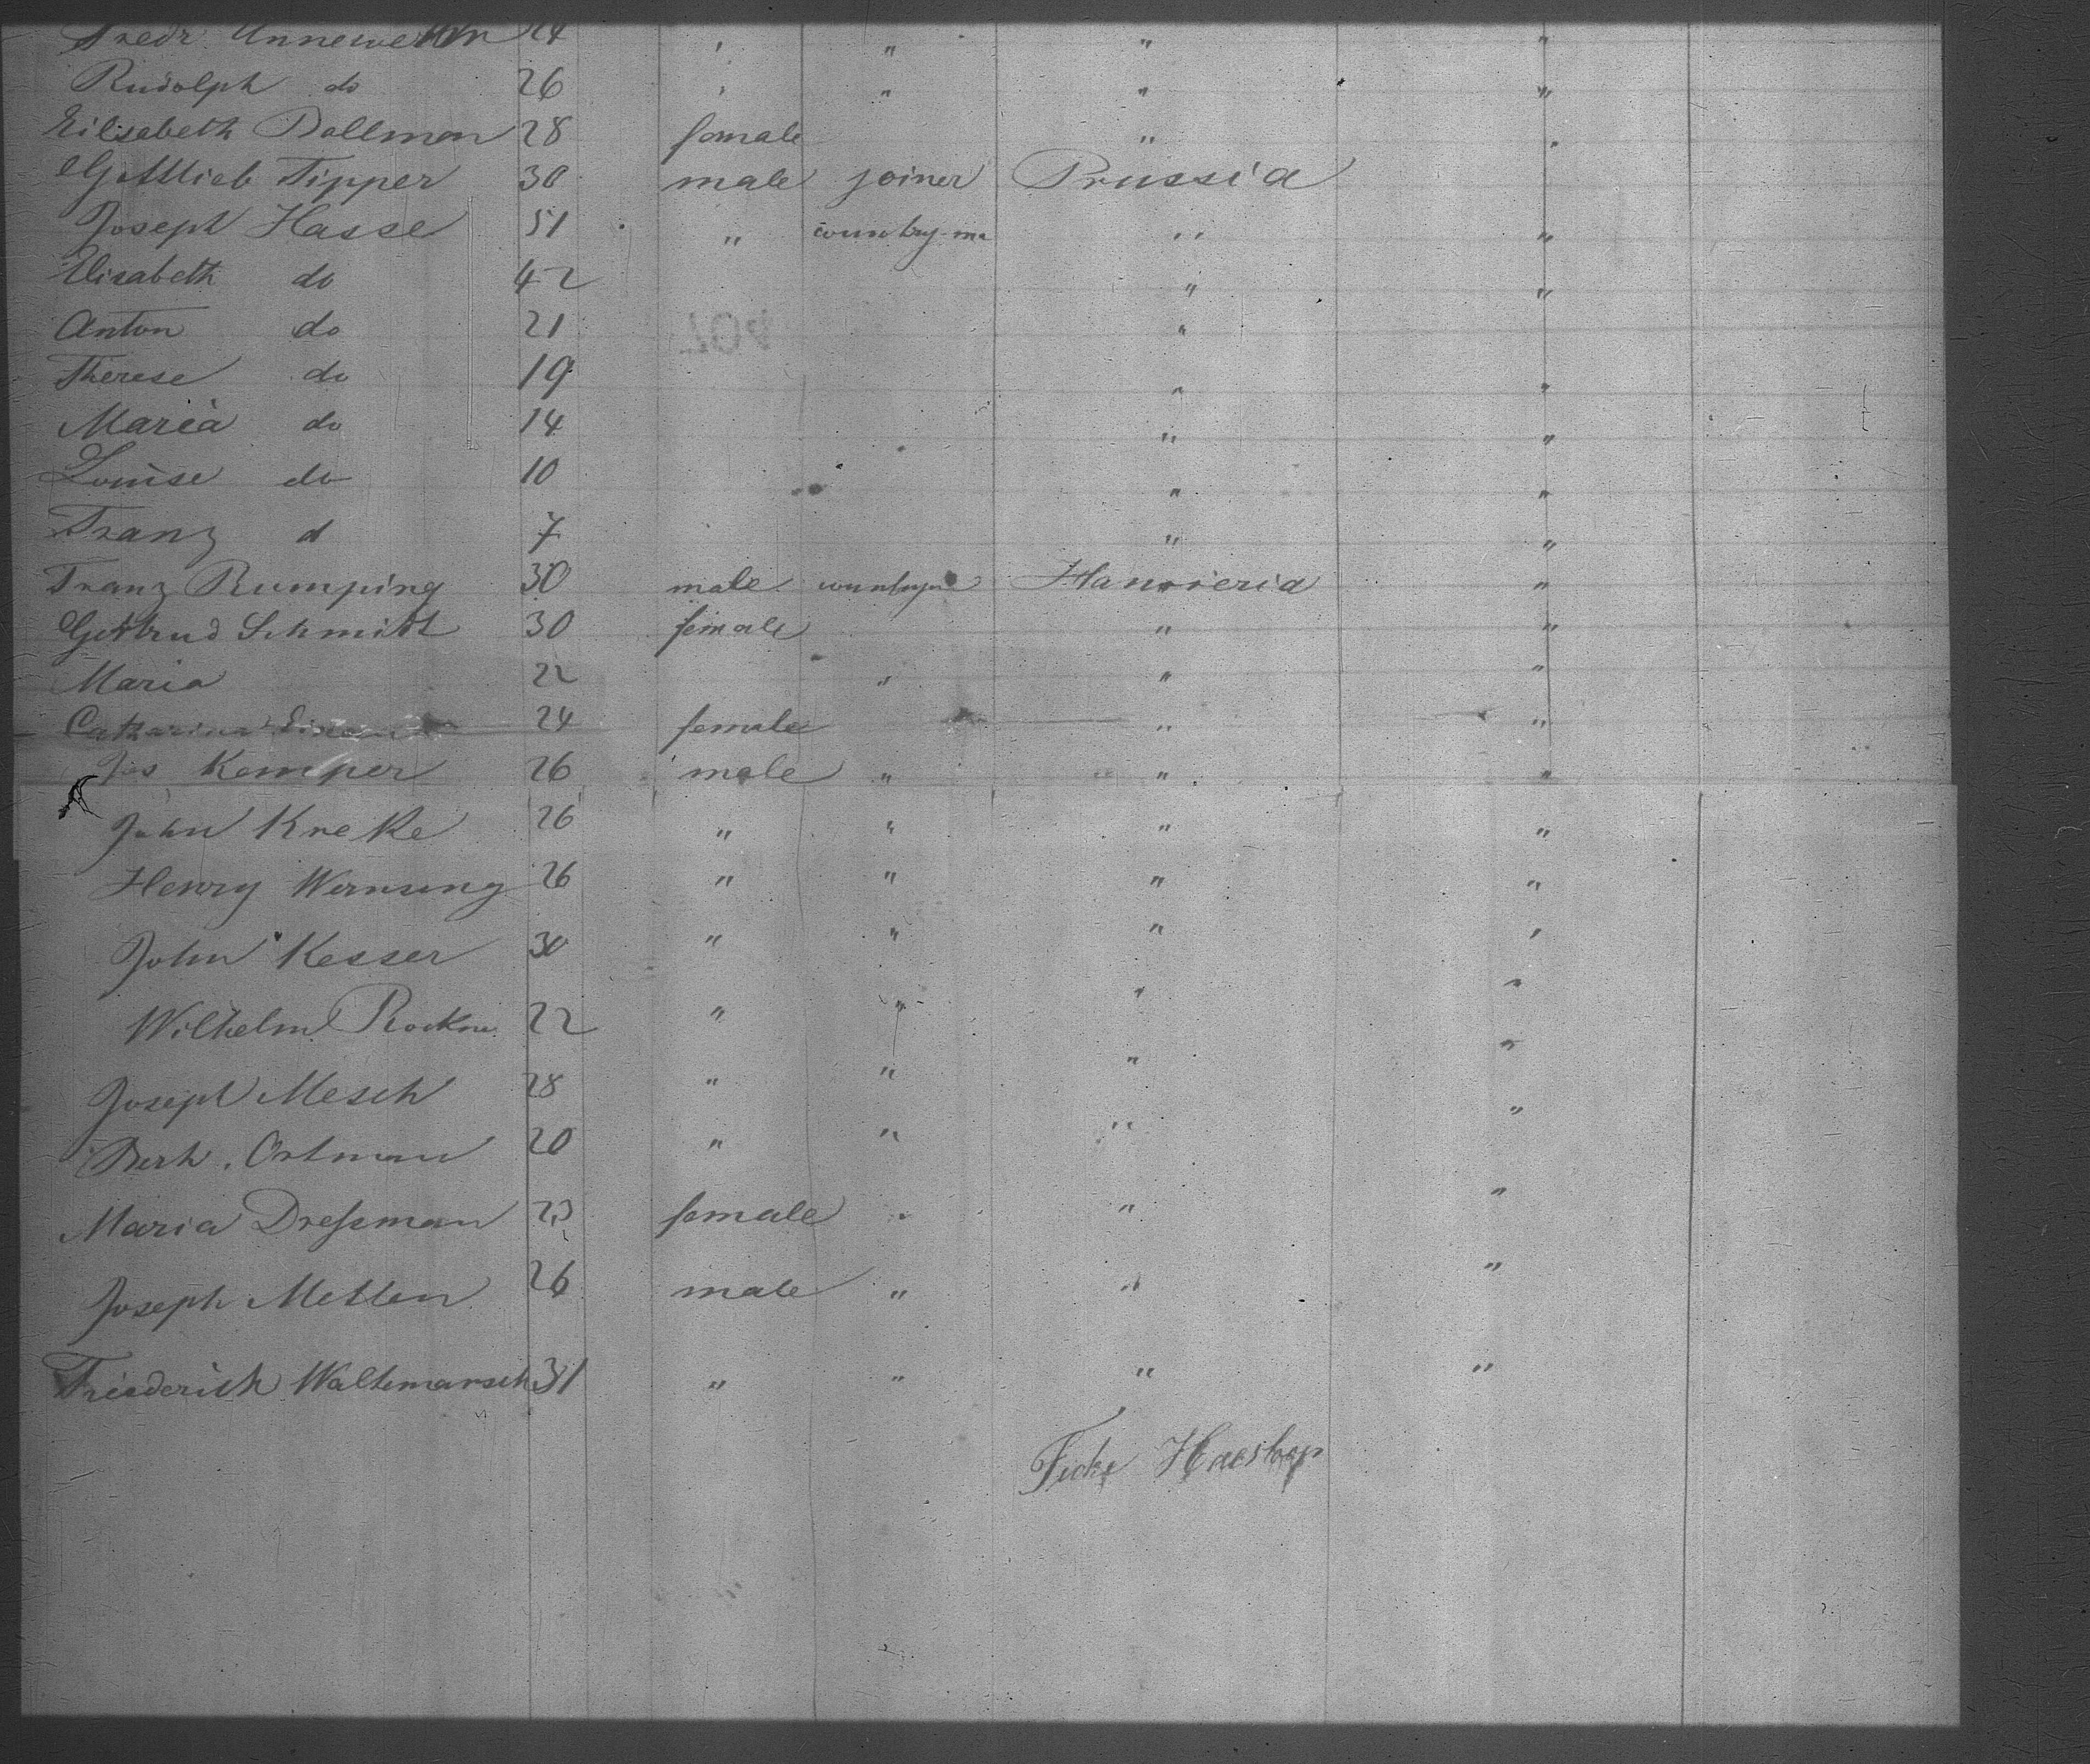 Fredr. Annewerth 24 " " " "
Rudolph do 26 " " " "
Eilisabeth Dallman 28 female " "
Gottlieb Tipper 30 male joiner Prussia
Joseph Hasse 51 " country-ma " "
Elisabeth do 42 " "
Anton do 21 "
Therese do 19 " "
Maria do 14 " "
Louise do 10 " "
Franz d 7 " "
Franz Rumping 30 male Hannieria "
Gertrud Schmidt 30 female " "
Maria 22 " " "
Catharina 24 female " "
Jos Kemper 26 male " " "
John Kreke 26 " " " "
Henry Wernsing 26 " " " "
John Kesser 30 " " " "
Wilhelm Rockow 22 " " " "
Joseph Mesch 28 " " " "
Berh. Ortman 20 " " " "
Maria Dreſsman 23 female " " "
Joseph Metten 26 male " " "
Friederich Waltemarsch 31 " " " "